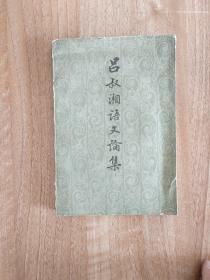 吕叔湘语文论集